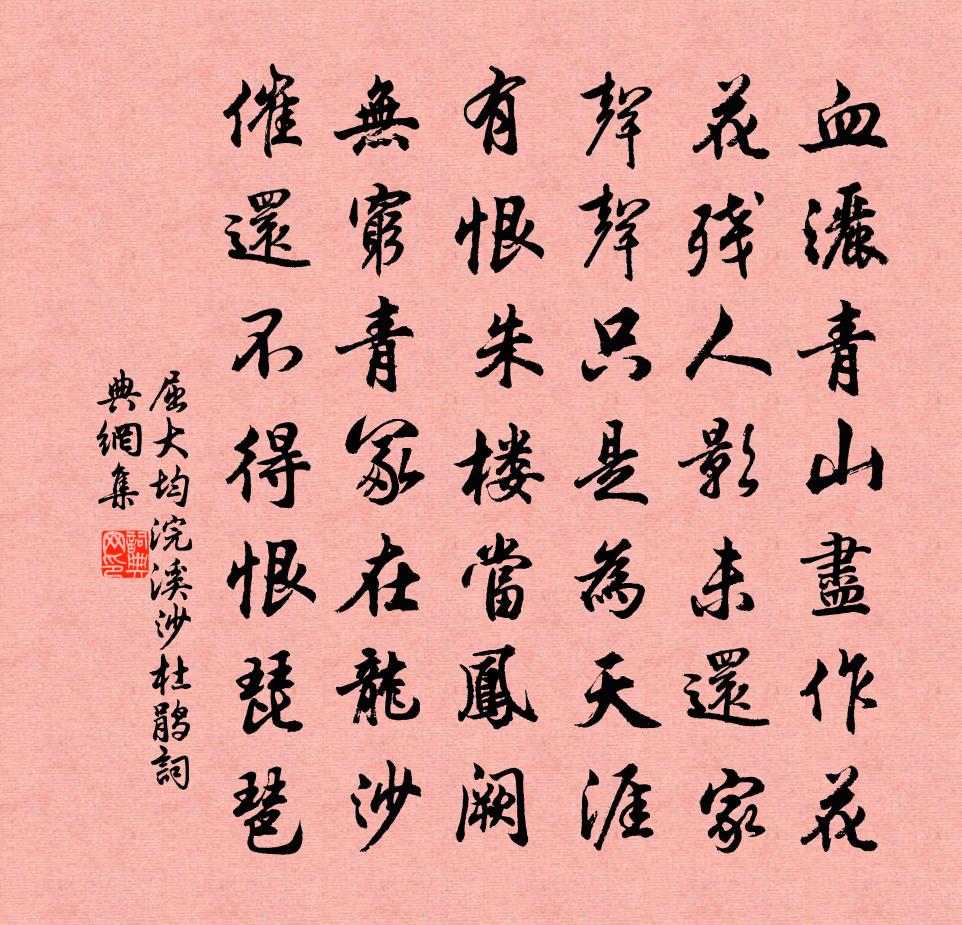 血灑青山盡作花
花残人影未還家
聲聲只是為天涯
有恨朱楼當鳳闕
無窮青冢在龍沙
催還不得恨琵琶
屈大均浣溪沙杜鹃詞
典網集
詞典网印